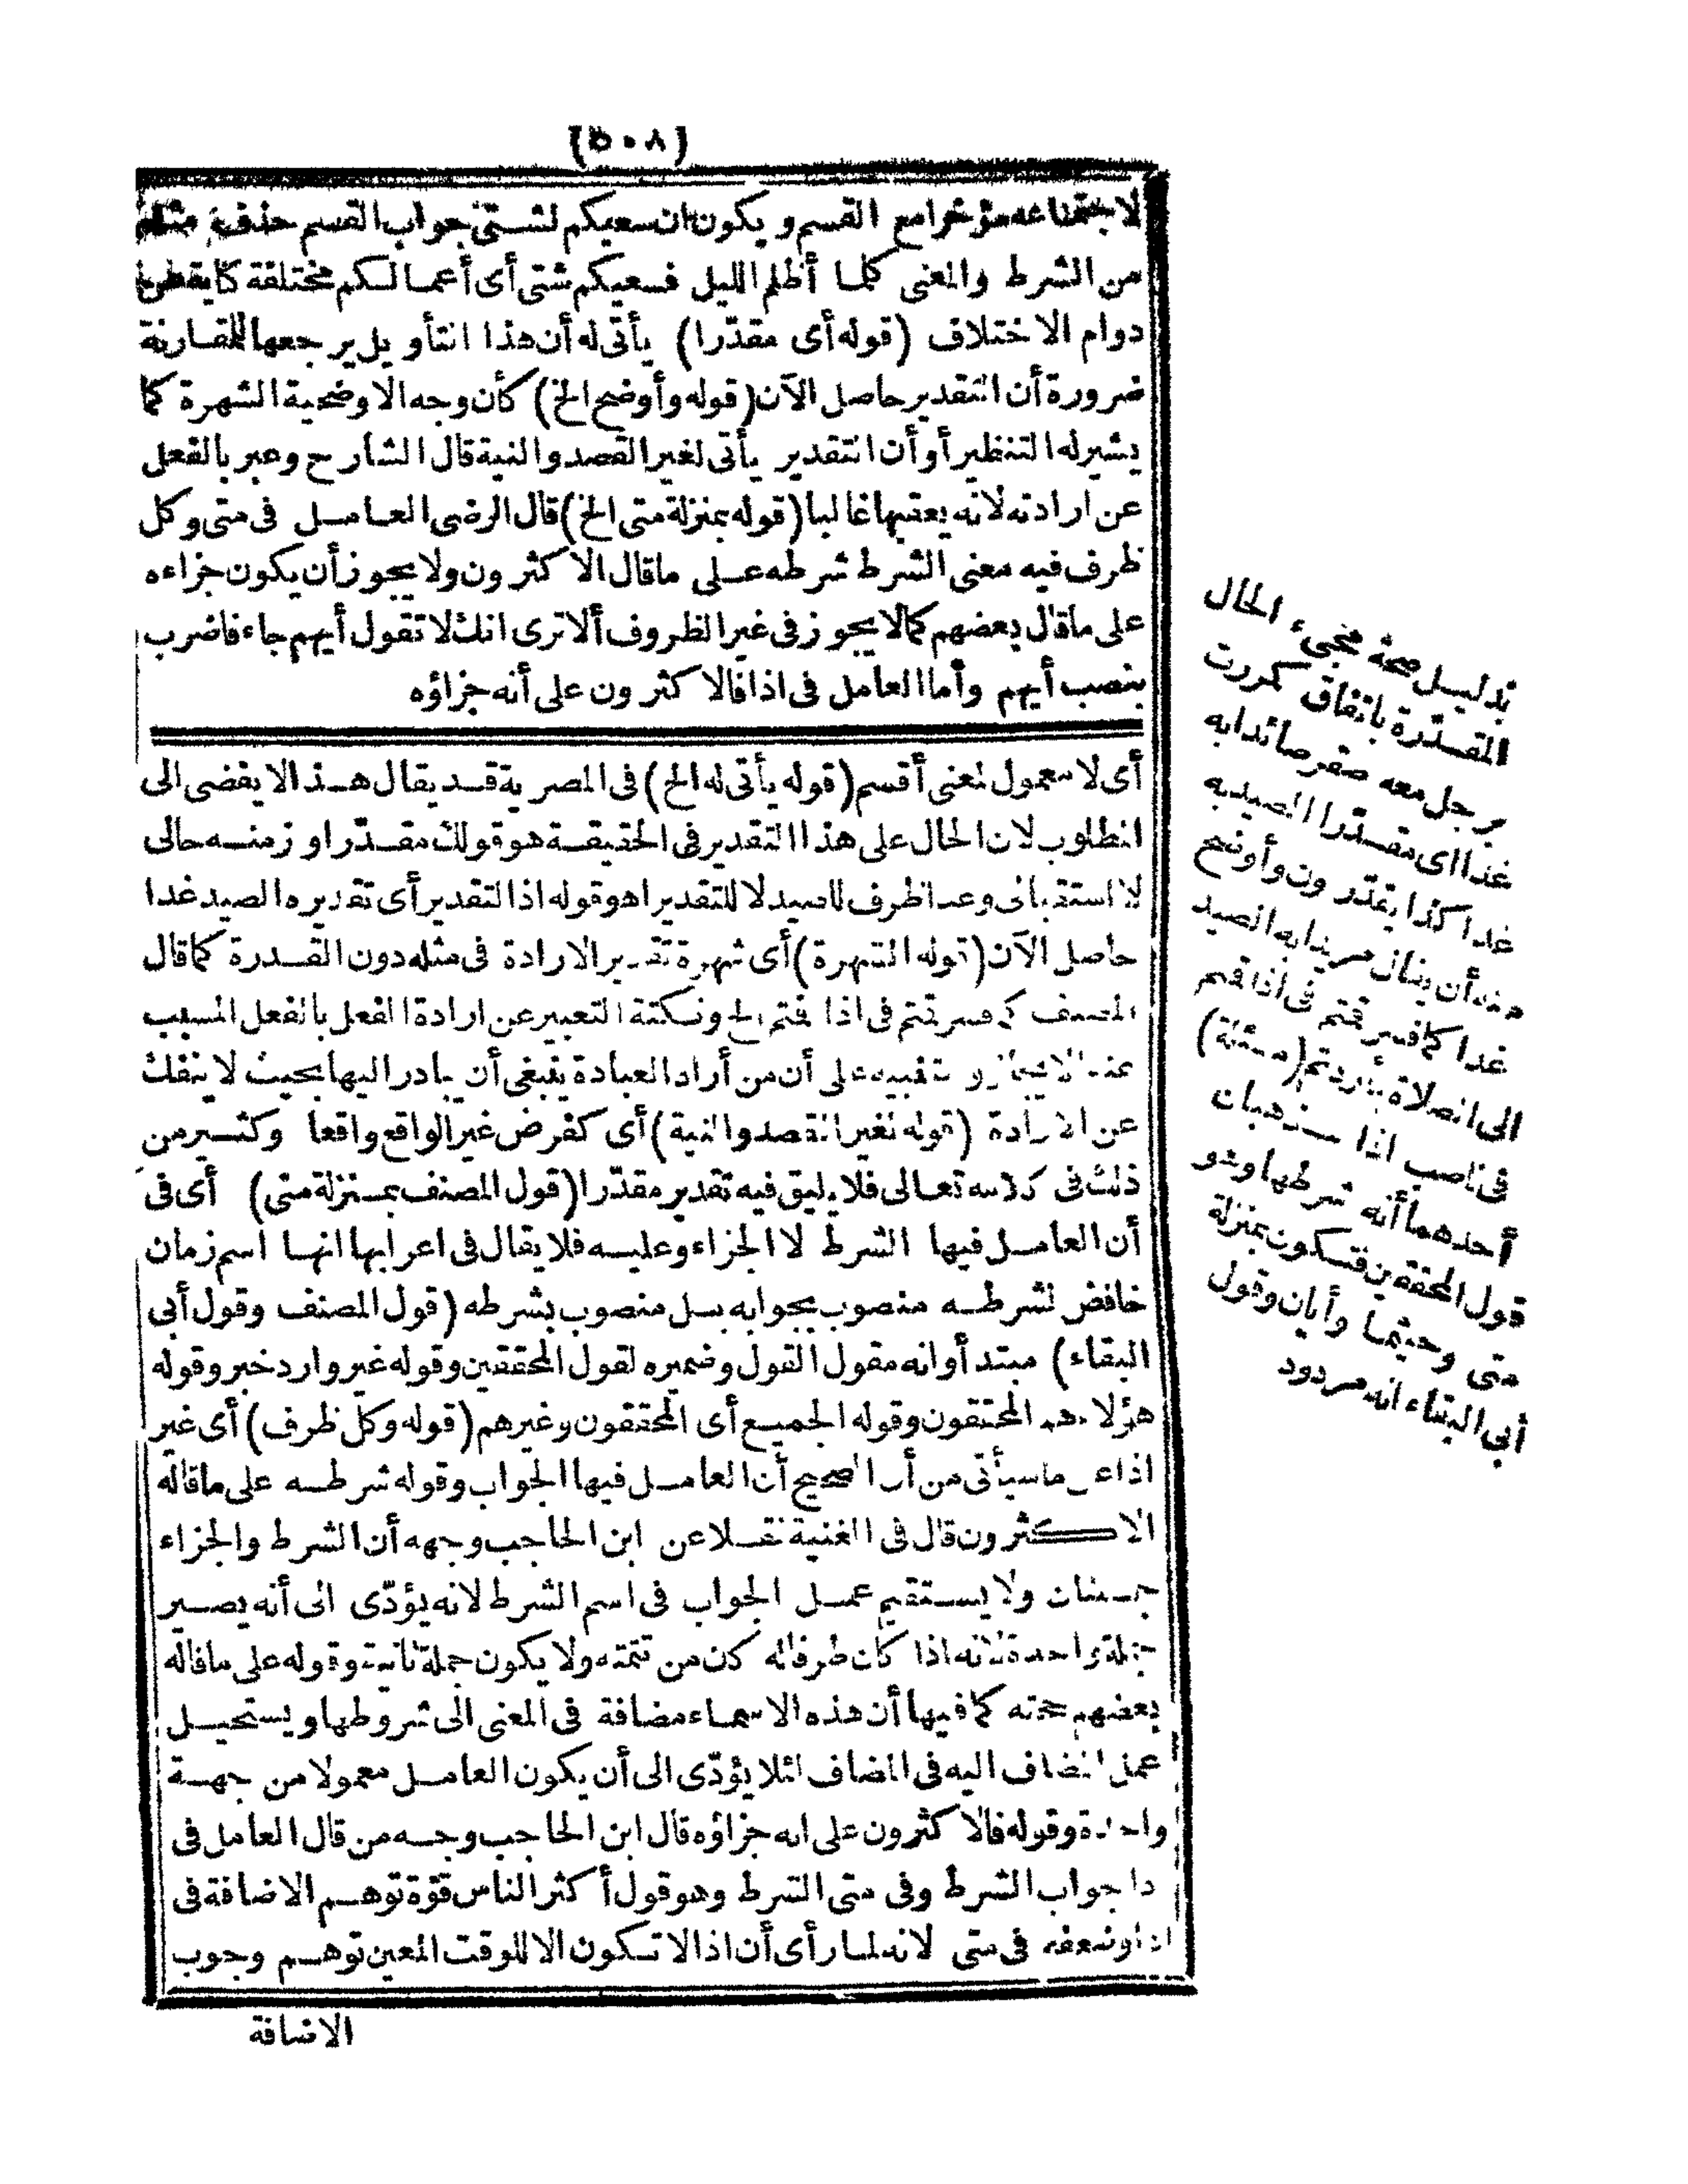 (٥٠٨)
لاجتماعه مؤخرا مع القسم و يكون ان سعيكم لشتى جواب القسم حذف مثله
من الشرط والمعنى كلما أظلم الليل فسعيكم شتى أى أعمالكم مختلفة كناية عن
دوام الاختلاف (قوله أى مقدّرا) يأتى له أن هذا التأويل يرجعها للمقارنة
ضرورة أن التقدير حاصل الآن (قوله وأوضح الخ) كأن وجه الاوضحية الشهرة كما
يشير له التنظير أو أن التقدير يأتى لغير القصد والنية قال الشارح وعبر بالفعل
عن ارادته لانه يعقبها غالبا (قوله بمنزلة متى الخ) قال الرضى العامل فى متى وكل
ظرف فيه معنى الشرط شرطه على ماقال الاكثرون ولا يجوز أن يكون جزاءه
على ماقال بعضهم كما لا يجوز فى غير الظروف ألا ترى انك لا تقول أيهم جاء فاضرب
بنصب أيهم وأما العامل فى اذا فالاكثرون على أنه جزاؤه
أى لا معمول لمعنى أقسم (قوله يأتى له الخ) فى المصرية قد يقال هذا لا يفضى الى
المطلوب لان الحال على هذا التقدير فى الحقيقة هو قولك مقدّرا و زمنه حالى
لا استقبالى وغدا ظرف للصيد لا للتقدير اه وقوله اذ التقدير أى تقديره الصيد غدا
حاصل الآن (قوله الشهرة) أى شهرة تقدير الارادة فى مثله دون القدرة كما قال
المصنف كما فسر قمتم فى اذا قمتم الخ ونكتة التعبير عن ارادة الفعل بالفعل المسبب
عنها الايجاز و تنبيه على أن من أراد العبادة ينبغى أن يبادر اليها بحيث لا ينفك
عن الارادة (قوله لغير القصد والنية) أى كفرض غير الواقع واقعا وكثير من
ذلك فى كلامه تعالى فلا يليق فيه تقدير مقدّرا (قول المصنف بمنزلة متى) أى فى
أن العامل فيها الشرط لا الجزاء وعليه فلا يقال فى اعرابها انها اسم زمان
خافض لشرطه منصوب بجوابه بل منصوب بشرطه (قول المصنف وقول أبى
البقاء) مبتدأ وانه مقول القول وضميره لقول المحققين وقوله غير وارد خبر وقوله
هؤلاء هم المحققون وقوله الجميع أى المحققون وغيرهم (قوله وكل ظرف) أى غير
اذا على ماسيأتى من أن الصحيح أن العامل فيها الجواب وقوله شرطه على ماقاله
الاكثرون قال فى الغنية نقلا عن ابن الحاجب وجهه أن الشرط والجزاء
جملتان ولا يستقيم عمل الجواب فى اسم الشرط لانه يؤدّى الى أنه يصير
جملة واحدة لانه اذا كان ظرفا له كان من تتمته ولا يكون جملة ثانية وقوله على ماقاله
بعضهم حجته كما فيها أن هذه الاسماء مضافة فى المعنى الى شروطها ويستحيل
عمل المضاف اليه فى المضاف لئلا يؤدّى الى أن يكون العامل معمولا من جهة
واحدة وقوله فالاكثرون على انه جزاؤه قال ابن الحاجب وجه من قال العامل فى
اذا جواب الشرط وفى متى الشرط وهو قول أكثر الناس قوّة توهم الاضافة فى
اذا وضعفه فى متى لانه لما رأى أن اذا لا تكون الا للوقت المعين توهم وجوب
الاضافة
بدليل صحة مجىء الحال
المقدّرة باتفاق كمررت
برجل معه صقر صائدا به
غدا اى مقدّرا الصيد به
غدا كذا يقدّرون وأوضح
منه أن يقال مريدا به الصيد
غدا كما فسر قمتم فى اذا قمتم
الى الصلاة بأردتم (مسئلة)
فى ناصب اذا مذهبان
أحدهما أنه شرطها وهو
قول المحققين فتكون بمنزلة
متى وحيثما وأيان وقول
أبى البقاء انه مردود